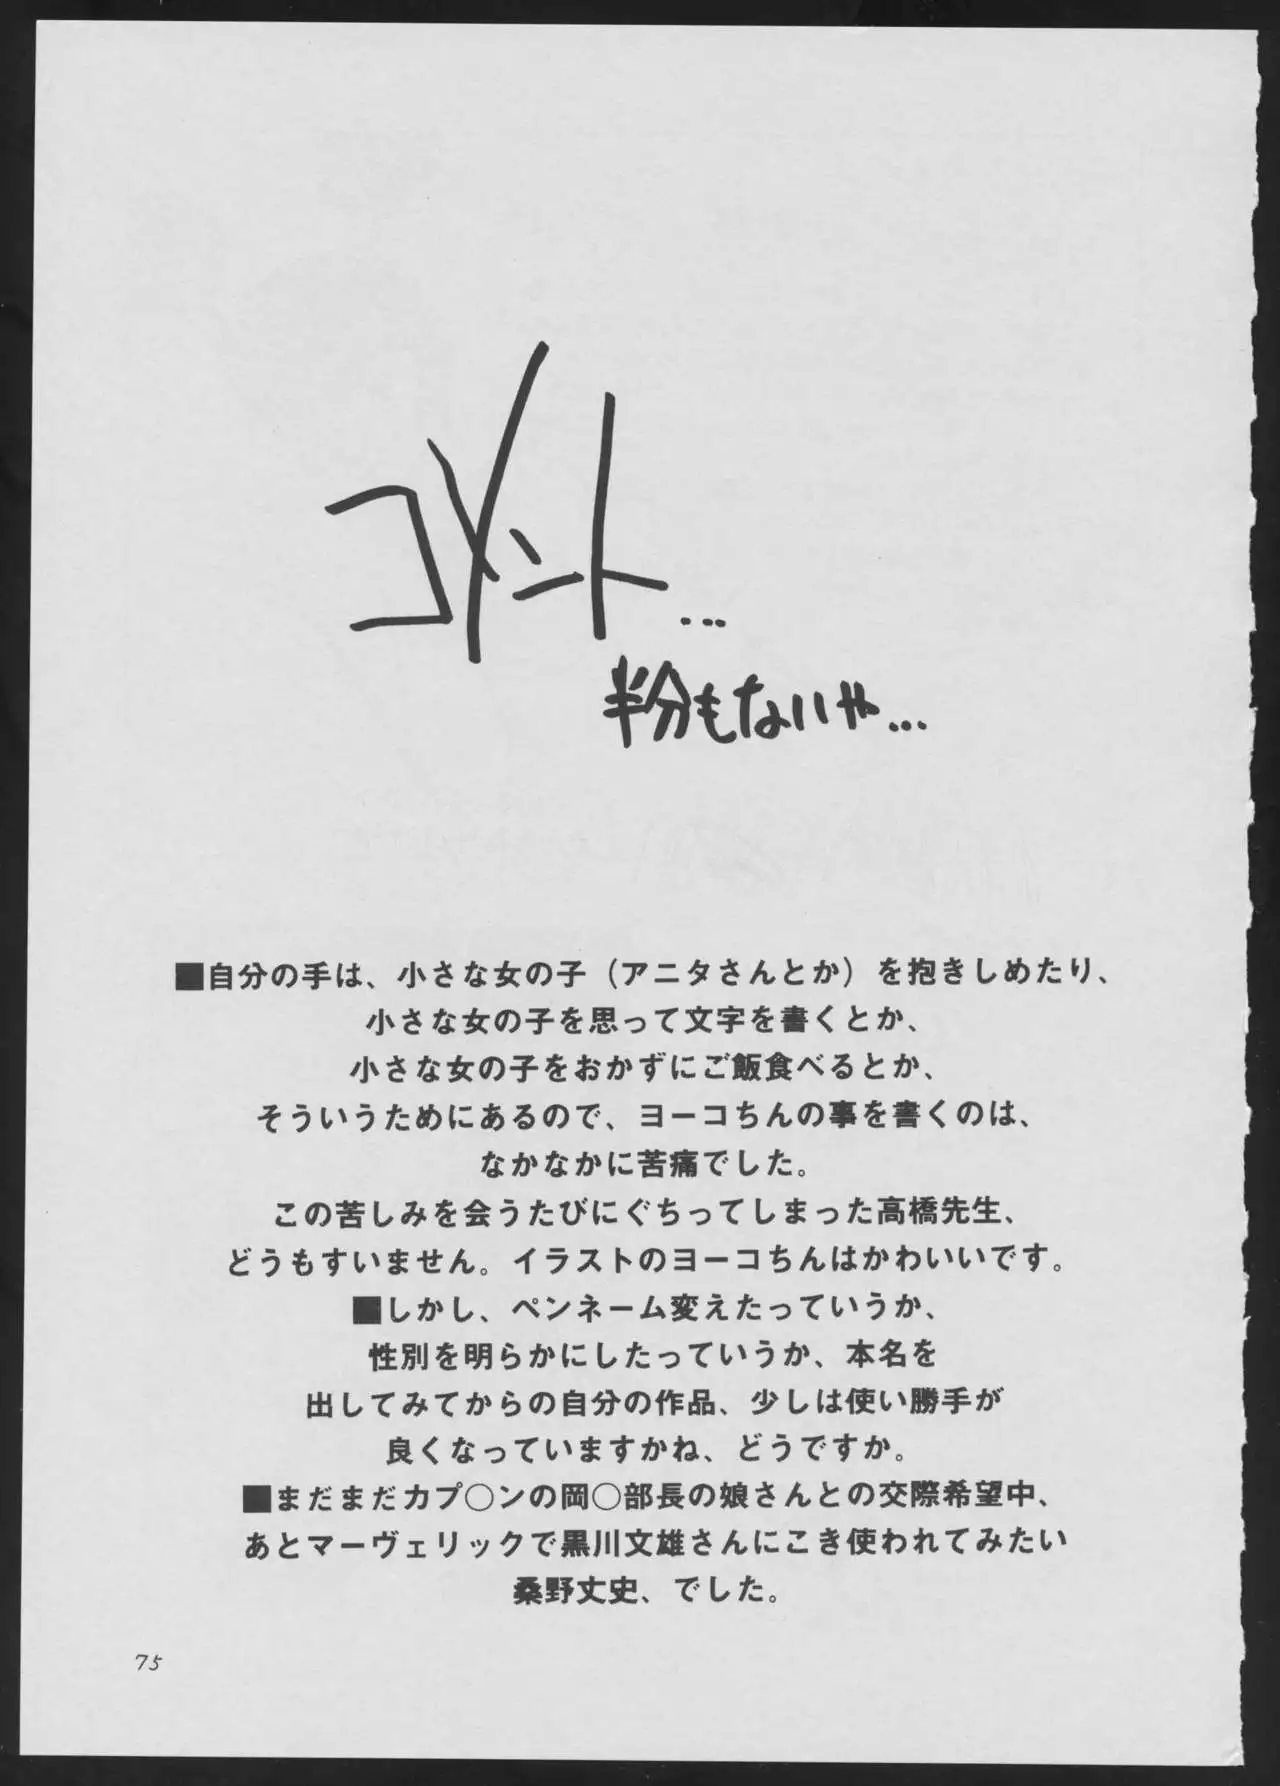 コメント…
半分もないや…
■自分の手は、小さな女の子（アニタさんとか）を抱きしめたり、
小さな女の子を思って文字を書くとか、
小さな女の子をおかずにご飯食べるとか、
そういうためにあるので、ヨーコちんの事を書くのは、
なかなかに苦痛でした。
この苦しみを会うたびにぐちってしまった高橋先生、
どうもすいません。イラストのヨーコちんはかわいいです。
■しかし、ペンネーム変えたっていうか、
性別を明らかにしたっていうか、本名を
出してみてからの自分の作品、少しは使い勝手が
良くなっていますかね、どうですか。
■まだまだカプ○ンの岡○部長の娘さんとの交際希望中、
あとマーヴェリックで黒川文雄さんにこき使われてみたい
桑野丈史、でした。
75